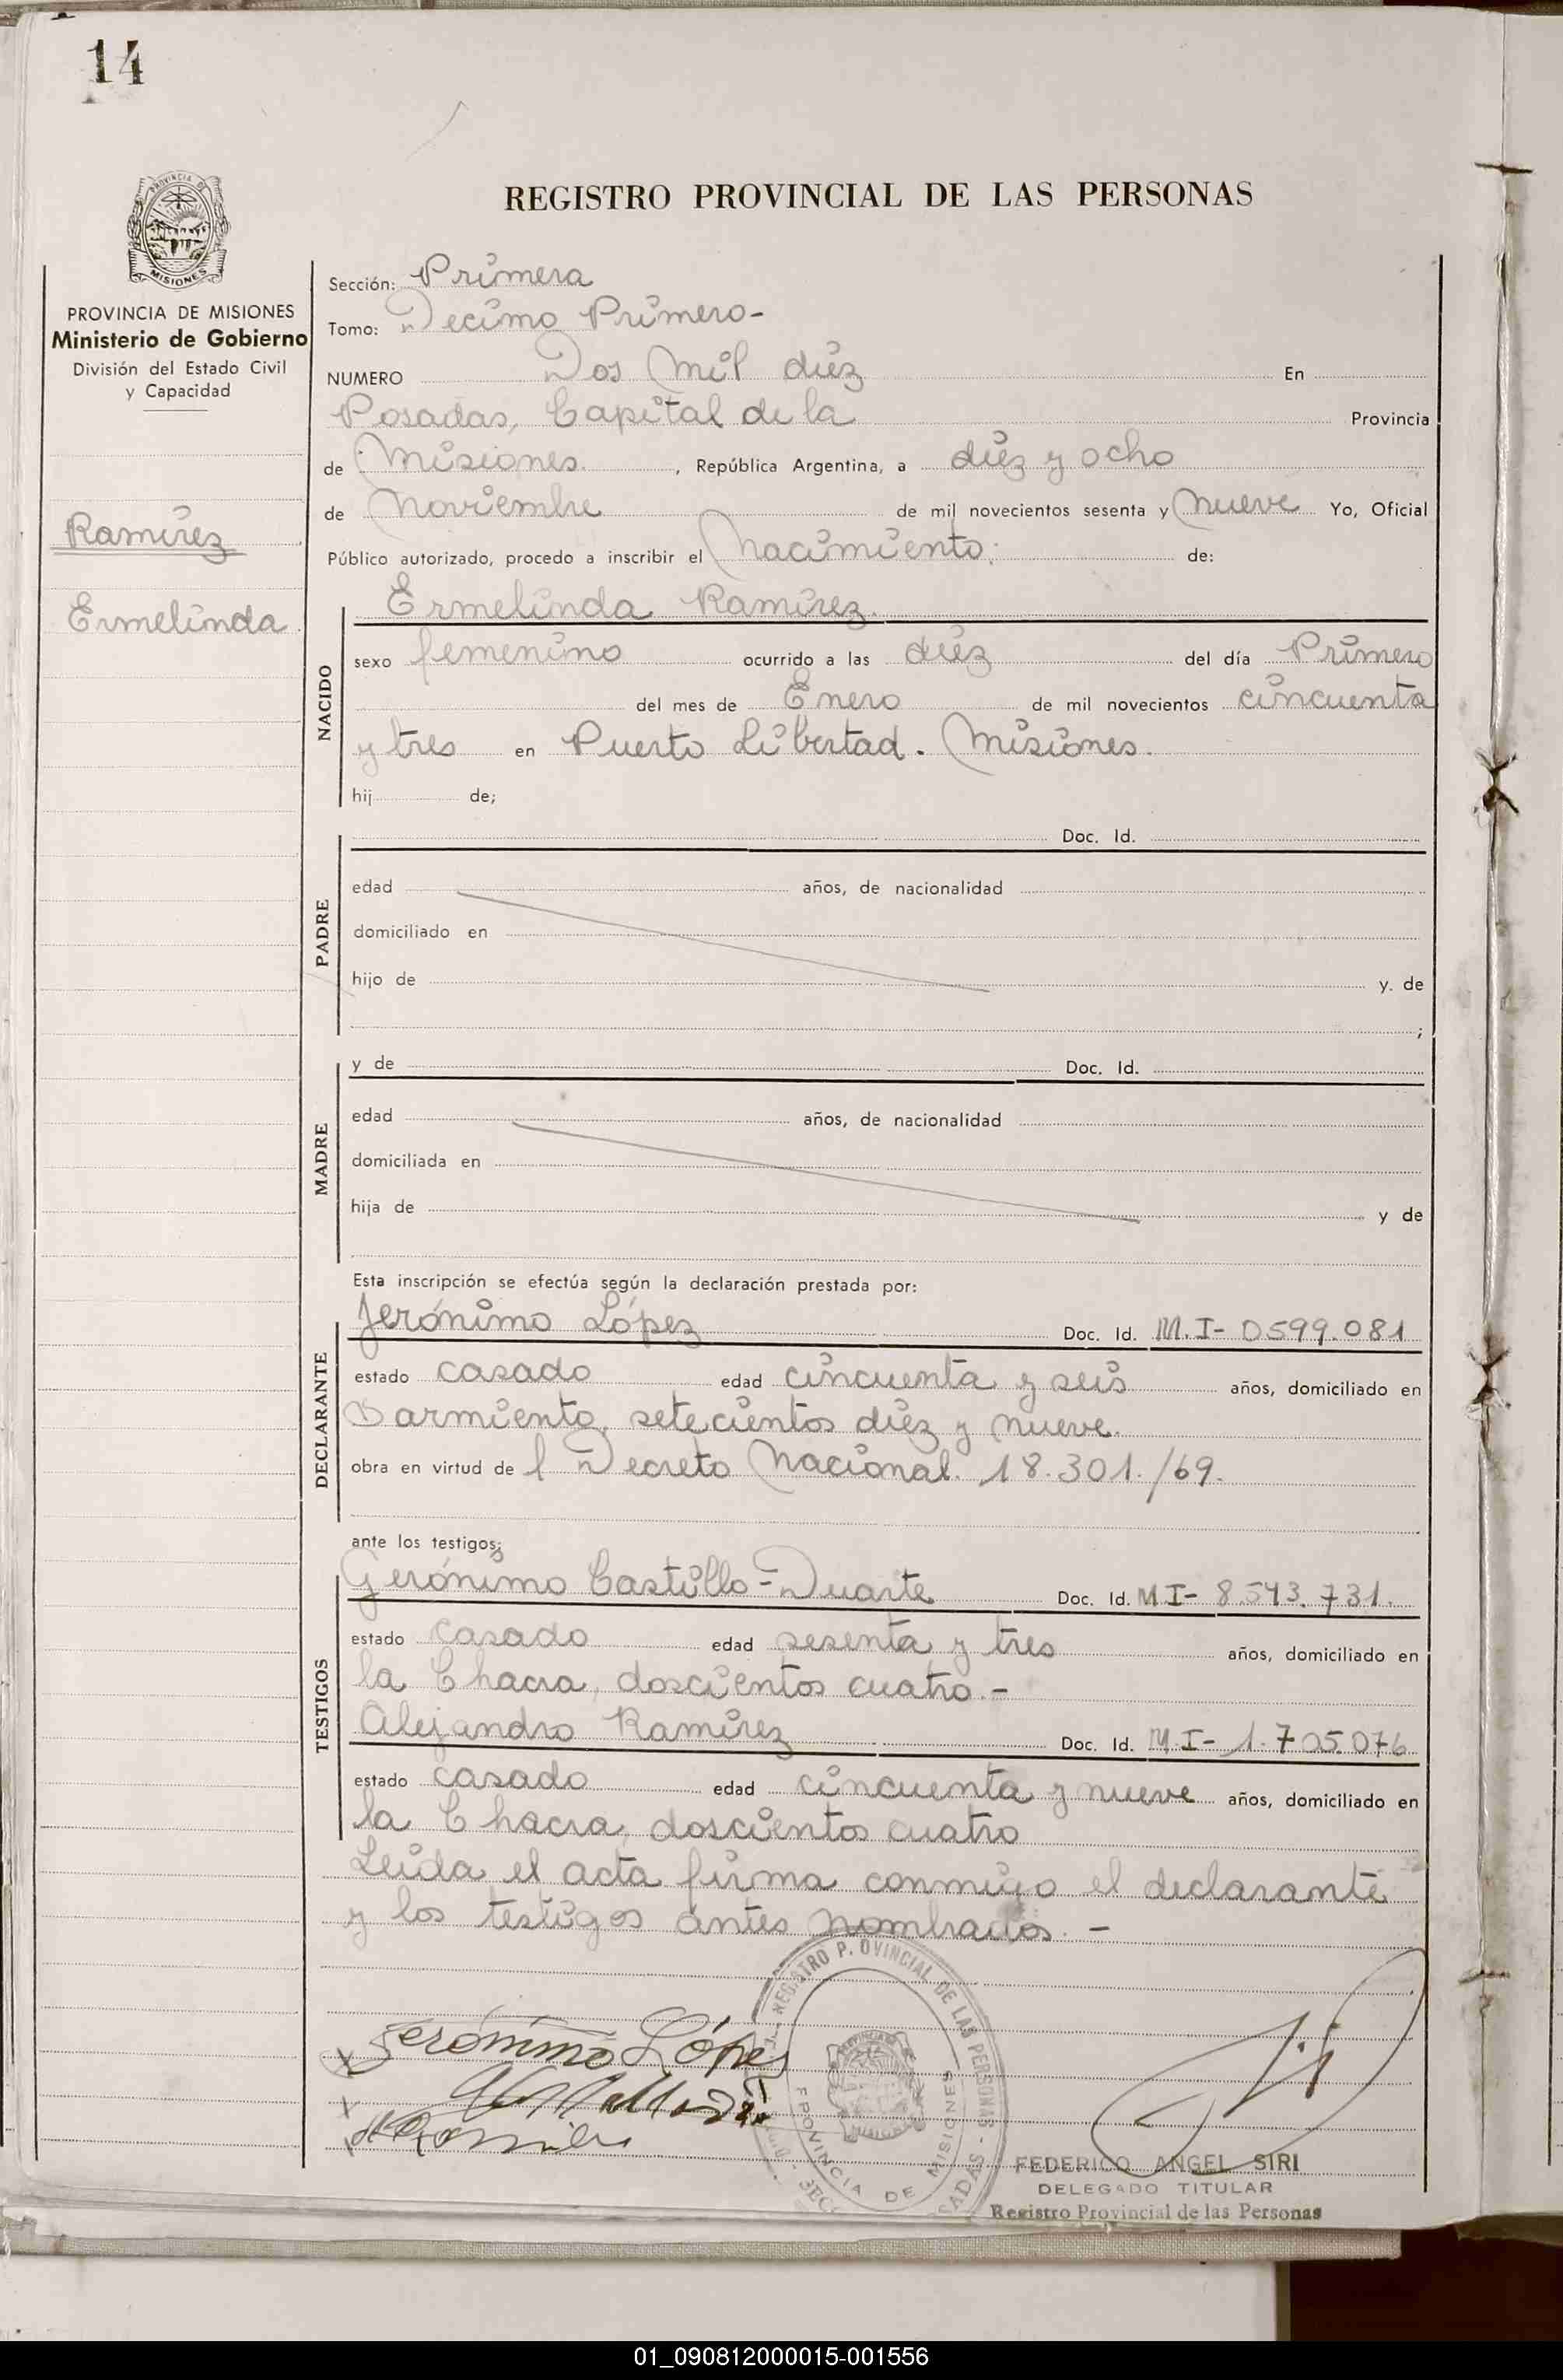 14
REGISTRO PROVINCIAL DE LAS PERSONAS
PROVINCIA DE
MISIONES
PROVINCIA DE MISIONES
Ministerio de Gobierno
División del Estado Civil
y Capacidad
Ramírez
Ermelinda
Sección: Primera
Tomo: Decimo Primero-
NUMERO Dos Mil diez En
Posadas, Capital de la Provincia
de Misiones. , República Argentina, a diez y ocho
de Noviembre de mil novecientos sesenta y Nueve Yo, Oficial
Público autorizado, procedo a inscribir el Nacimiento: de:
NACIDO
Ermelinda Ramírez.
sexo femenino ocurrido a las diez del día Primero
del mes de Enero de mil novecientos cincuenta
y tres en Puerto Libertad. Misiones.
hij de;
PADRE
Doc. Id.
edad años, de nacionalidad
domiciliado en
hijo de y. de
;
MADRE
y de Doc. Id.
edad años, de nacionalidad
domiciliada en
hija de y de
Esta inscripción se efectúa según la declaración prestada por:
DECLARANTE
Jerónimo López Doc. Id. M.I- 0599.081
estado casado edad cincuenta y seis años, domiciliado en
Sarmiento, setecientos diez y nueve.
obra en virtud de l Decreto Nacional. 18.301./69.
ante los testigos;
TESTIGOS
Gerónimo Castillo-Duarte Doc. Id. M.I- 8.543.731.
estado casado edad sesenta y tres años, domiciliado en
la Chacra, doscientos cuatro.-
Alejandro Ramírez Doc. Id. M.I- 1.705.076
estado casado edad cincuenta y nueve años, domiciliado en
la Chacra, doscientos cuatro
Leida el acta firma conmigo el declarante
y los testigos antes nombrados. -
Jerónimo López
REGISTRO P. OVINCIAL DE LAS PERSONAS -
PROVINCIA DE MISIONES
FEDERICO ANGEL SIRI
DELEGADO TITULAR
Registro Provincial de las Personas
01_090812000015-001556